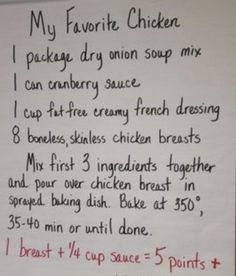 My Favorite Chicken
1 package dry onion soup mix
1 can cranberry sauce
1 cup fat free creamy french dressing
8 boneless, skinless chicken breasts
Mix first 3 ingredients together
and pour over chicken breast in
sprayed baking dish. Bake at 350°,
35-40 min or until done.
1 breast + 1/4 cup sauce = 5 points +